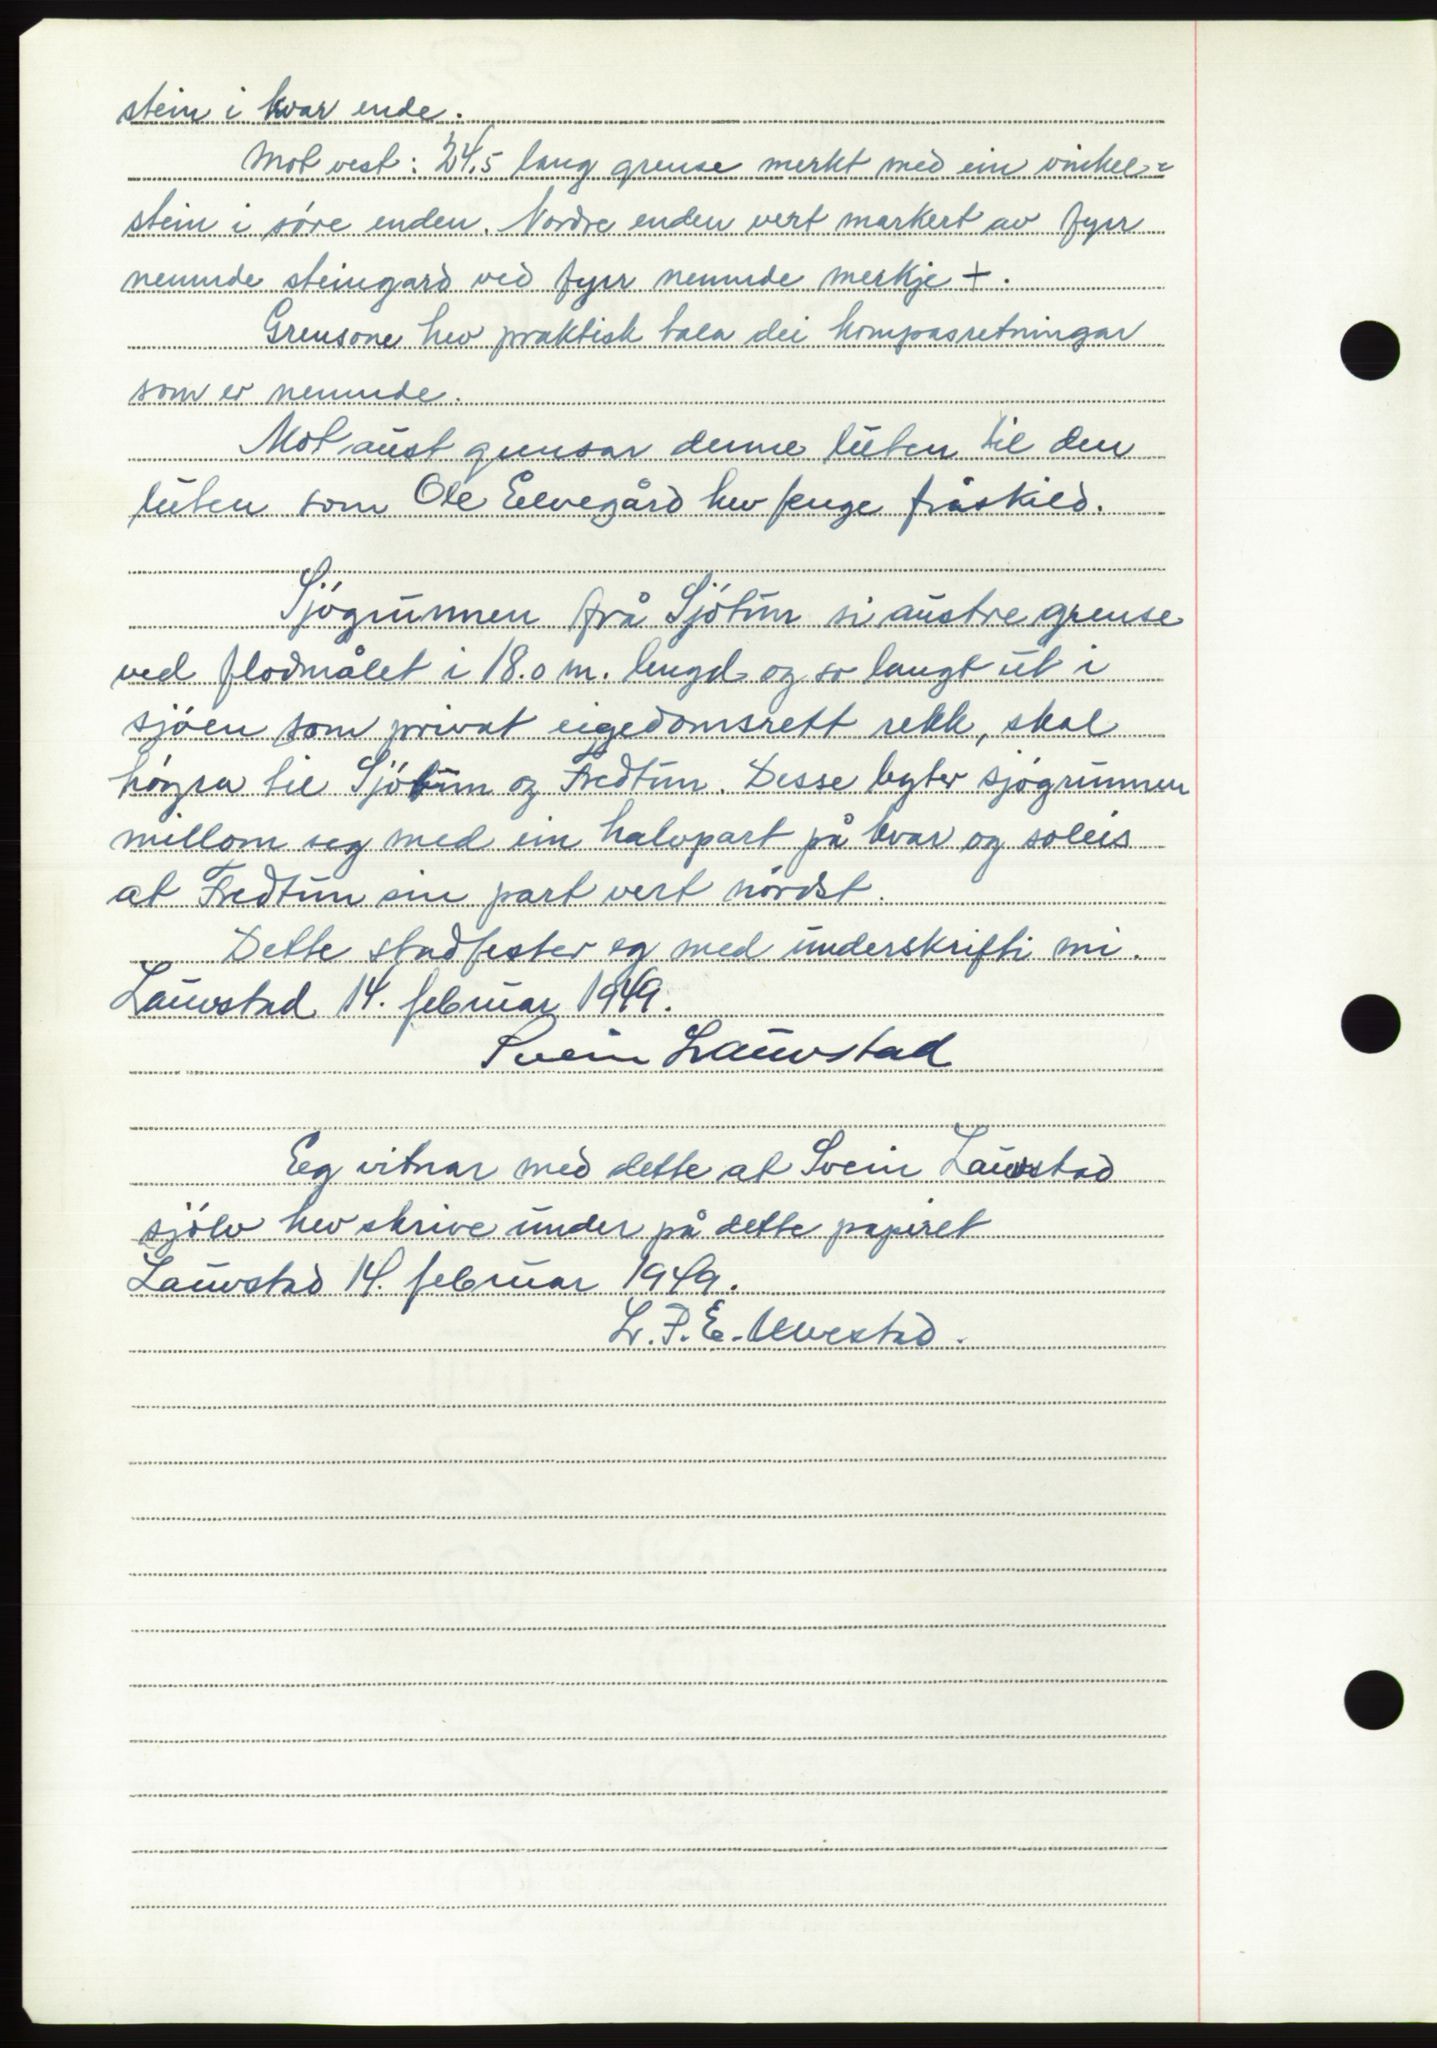 stein i kvar ende.
Mot vest: 24,5 lang grense merkt med ein vinkel=
stein i søre enden. Nordre enden vert markert av fyrr
nemnde steingard ved fyrr nemnde merkje +.
Grensone hev praktisk tala dei kompasretningar
som er nemnde.
Mot aust grensar denne luten til den
luten som Ole Eelvegård hev fenge fråskild.
Sjøgrunnen frå Sjøtun si austre grense
ved flodmålet i 18.0 m. lengd og so langt ut i
sjøen som privat eigedomsrett rekk, skal
høyra til Sjøtun og Fredtun. Desse byter sjøgrunnen
millom seg med ein halvpart på kvar og soleis
at Fredtun sin part vert nørdst.
Dette stadfester eg med underskrifti mi.
Lauvstad 14. februar 1949.
Svein Lauvstad
Eg vitnar med dette at Svein Lauvstad
sjølv hev skrive under på dette papiret
Lauvstad 14. februar 1949.
L. P. E.